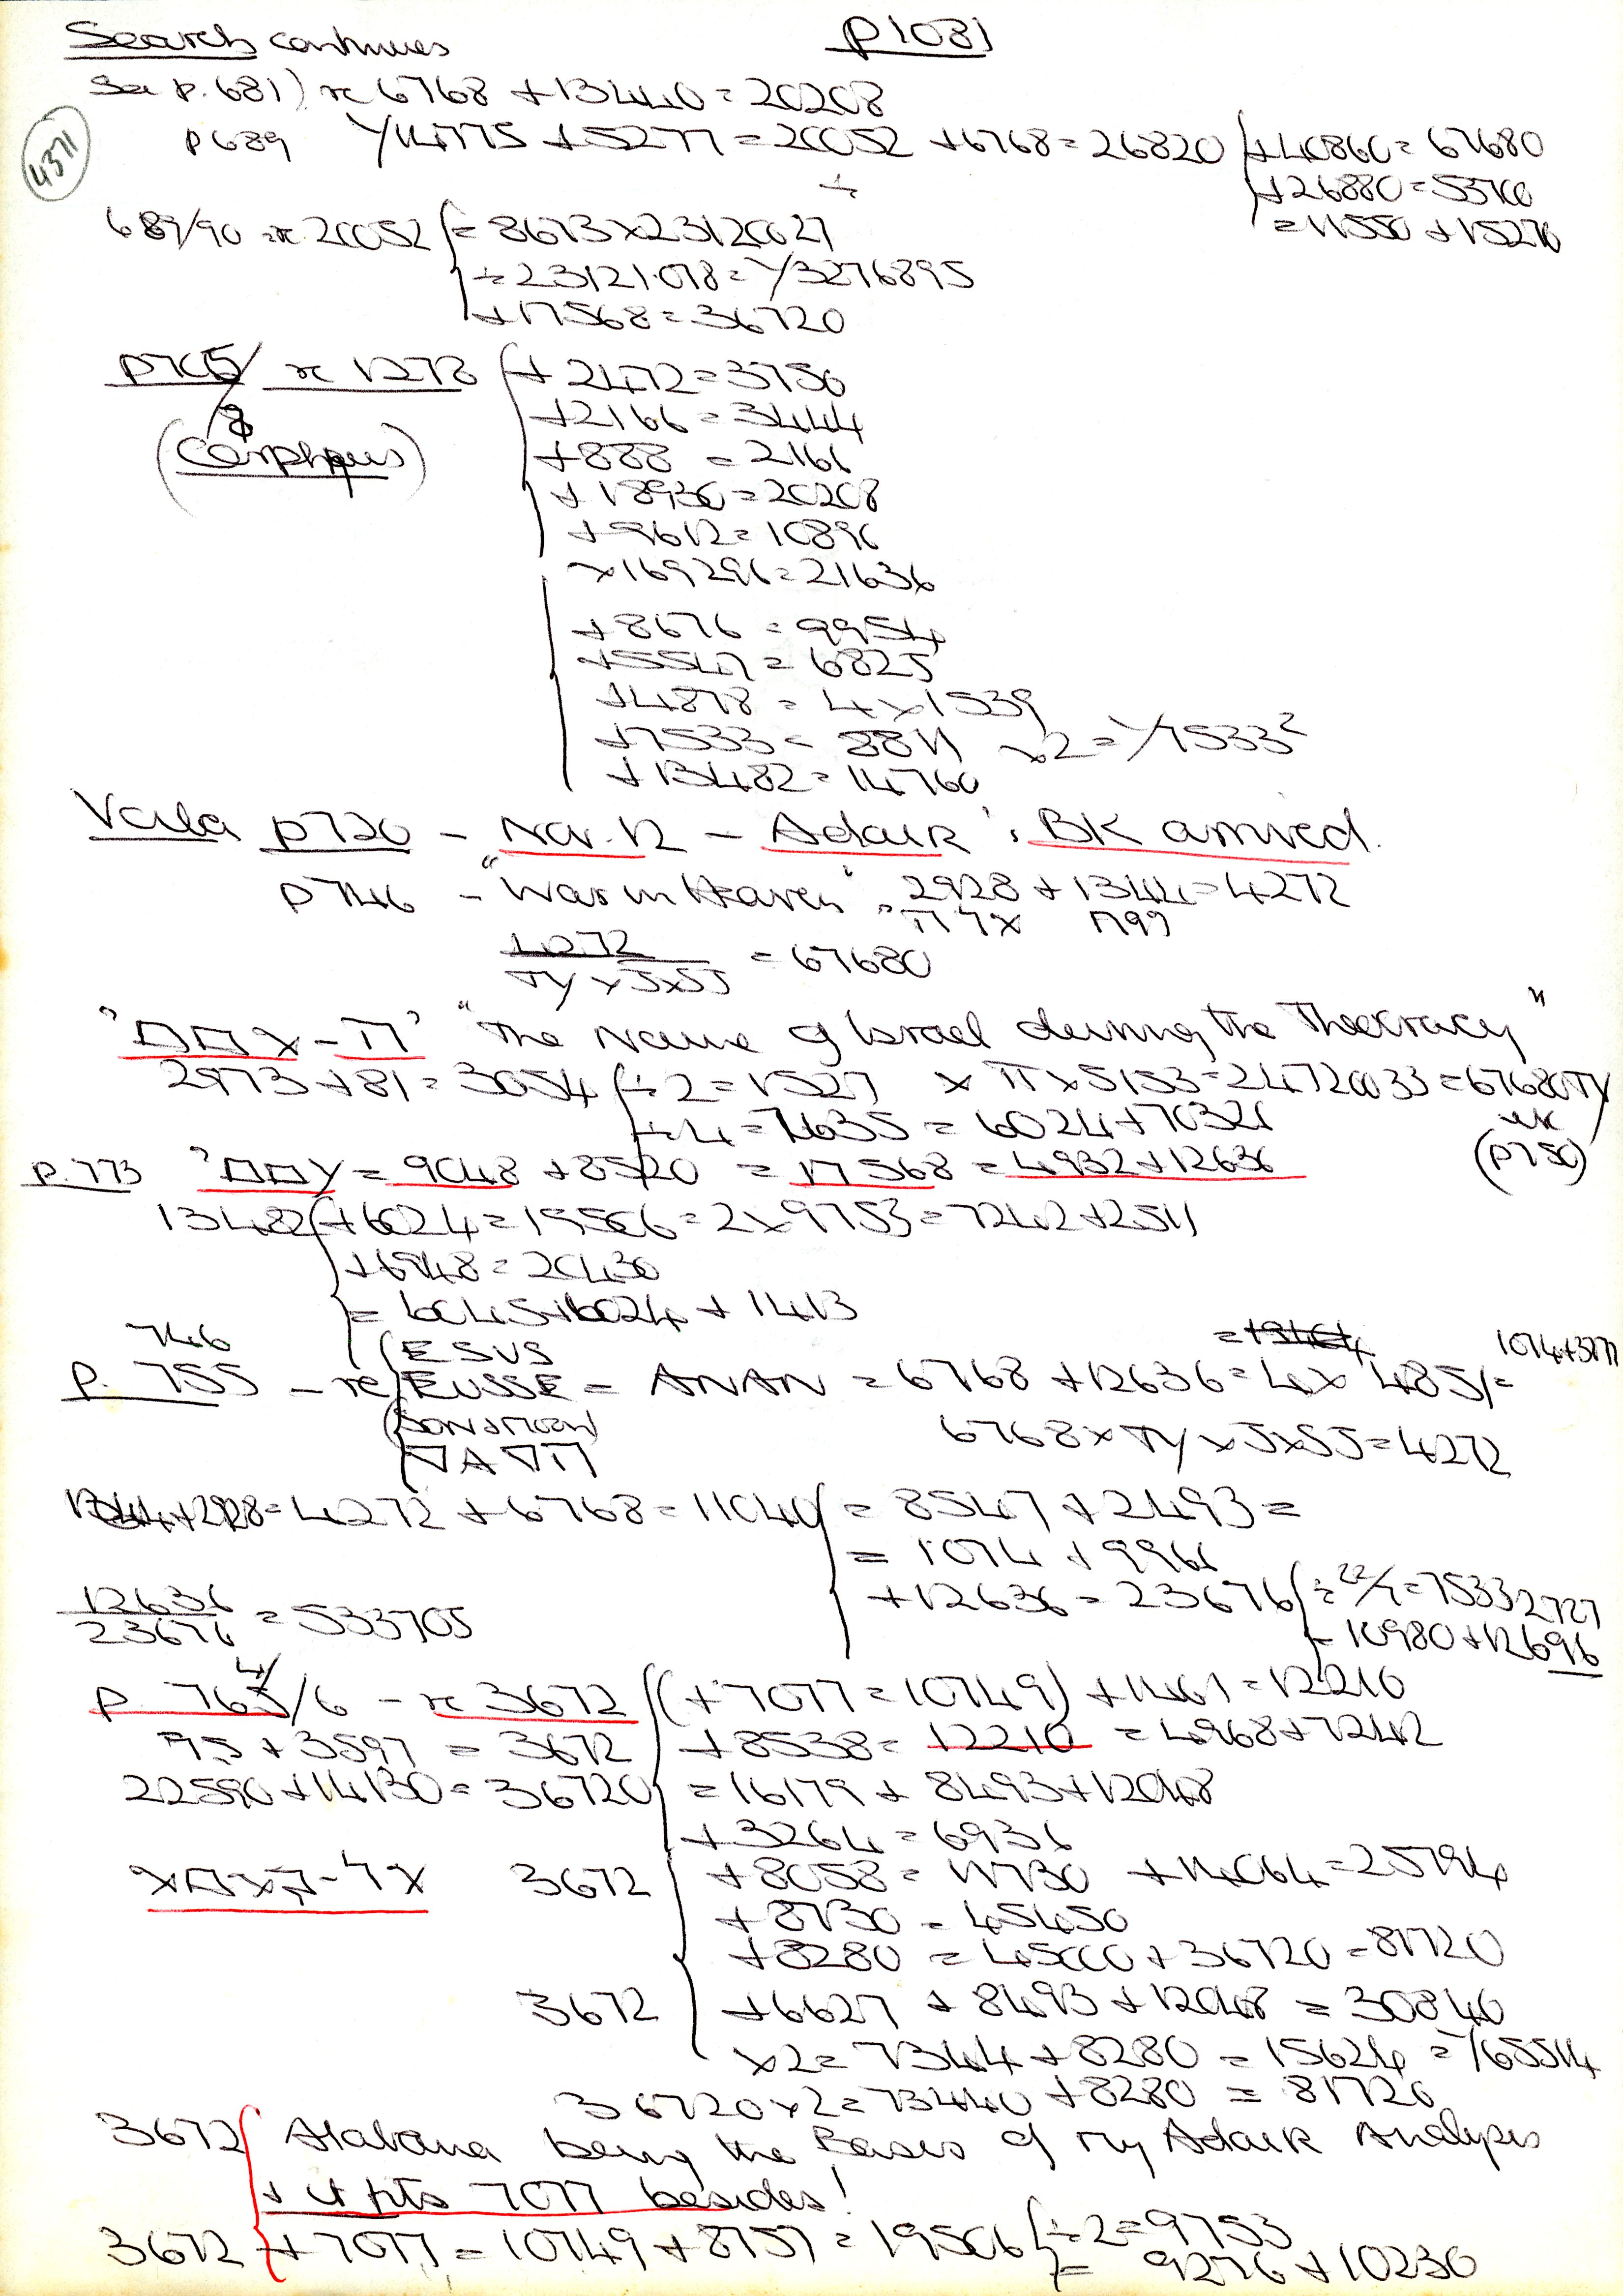 Search continues p1081
4371
See p. 681) re 6768 + 13440 = 20208
p689 √14775 + 5277 = 20052 + 6768 = 26820 + 40860 = 67680
+ 26880 = 53700
= 11550 + 15270
689/90 re 20052 = 8673 x 2312027
÷ 23121.078 = √3276895
+ 17568 = 36720
re 1278 + 2472 = 3750
+ 2166 = 3444
+ 888 = 2166
+ 18930 = 20208
+ 9612 = 10890
x 169296 = 21636
+ 8676 = 9954
+ 5547 = 6825
+ 4878 = 4 x 1539
+ 7533 = 8811 x 2 =
+ 13482 = 14760
Vala p720 - Nov. 12 - Adair : BK arrived.
p746 - "War in Heaven" 2928 + 1344 = 4272
= 67680
"The Name of Israel during the Theocracy"
2973 + 81 = 3054 ÷ 2 = 1527 x π x 5153 = 24720033 = 67680
÷ 4 = 7635 = 6024 +
(p750)
p. 773 = 9048 + 8520 = 17568 = 4932 + 12636
13482 + 6024 = 19506 = 2 x 9753 = 7242 +
+ 6948 = 20430
= 6045 + 6024 + 1413
746
p. 755 - re ESUS
EUSSE = ANAN = 6768 + 12636 = 4 x 4851 =
= 4272
1344 + 2928 = 4272 + 6768 = 11040 = 8547 + 2493 =
= 1074 + 9966
+ 12636 = 23676 ÷ 22/7 = 75332727
= 10980 + 12696
12636
23676 = 533705
p. 765/6 - re 3672 (+ 7077 = 10749) + 1461 = 12210
75 + 3597 = 3672 + 8538 = 12210 = 4968 + 7242
22590 + 14130 = 36720 = 16179 + 8493 + 12048
+ 3264 = 6936
3672 + 8058 = 11730 + 14064 = 25794
+ 8730 = 45450
+ 8280 = 45000 + 36720 = 81720
3672 + 6627 + 8493 + 12048 = 30840
x 2 = 7344 + 8280 = 15624 =
36720 x 2 = 73440 + 8280 = 81720
3672 Atabana being the Basis of my Adair Analysis
+ it pts 7077 besides!
3672 + 7077 = 10749 + 8757 = 19506 ÷ 2 = 9753
= 9276 + 10230